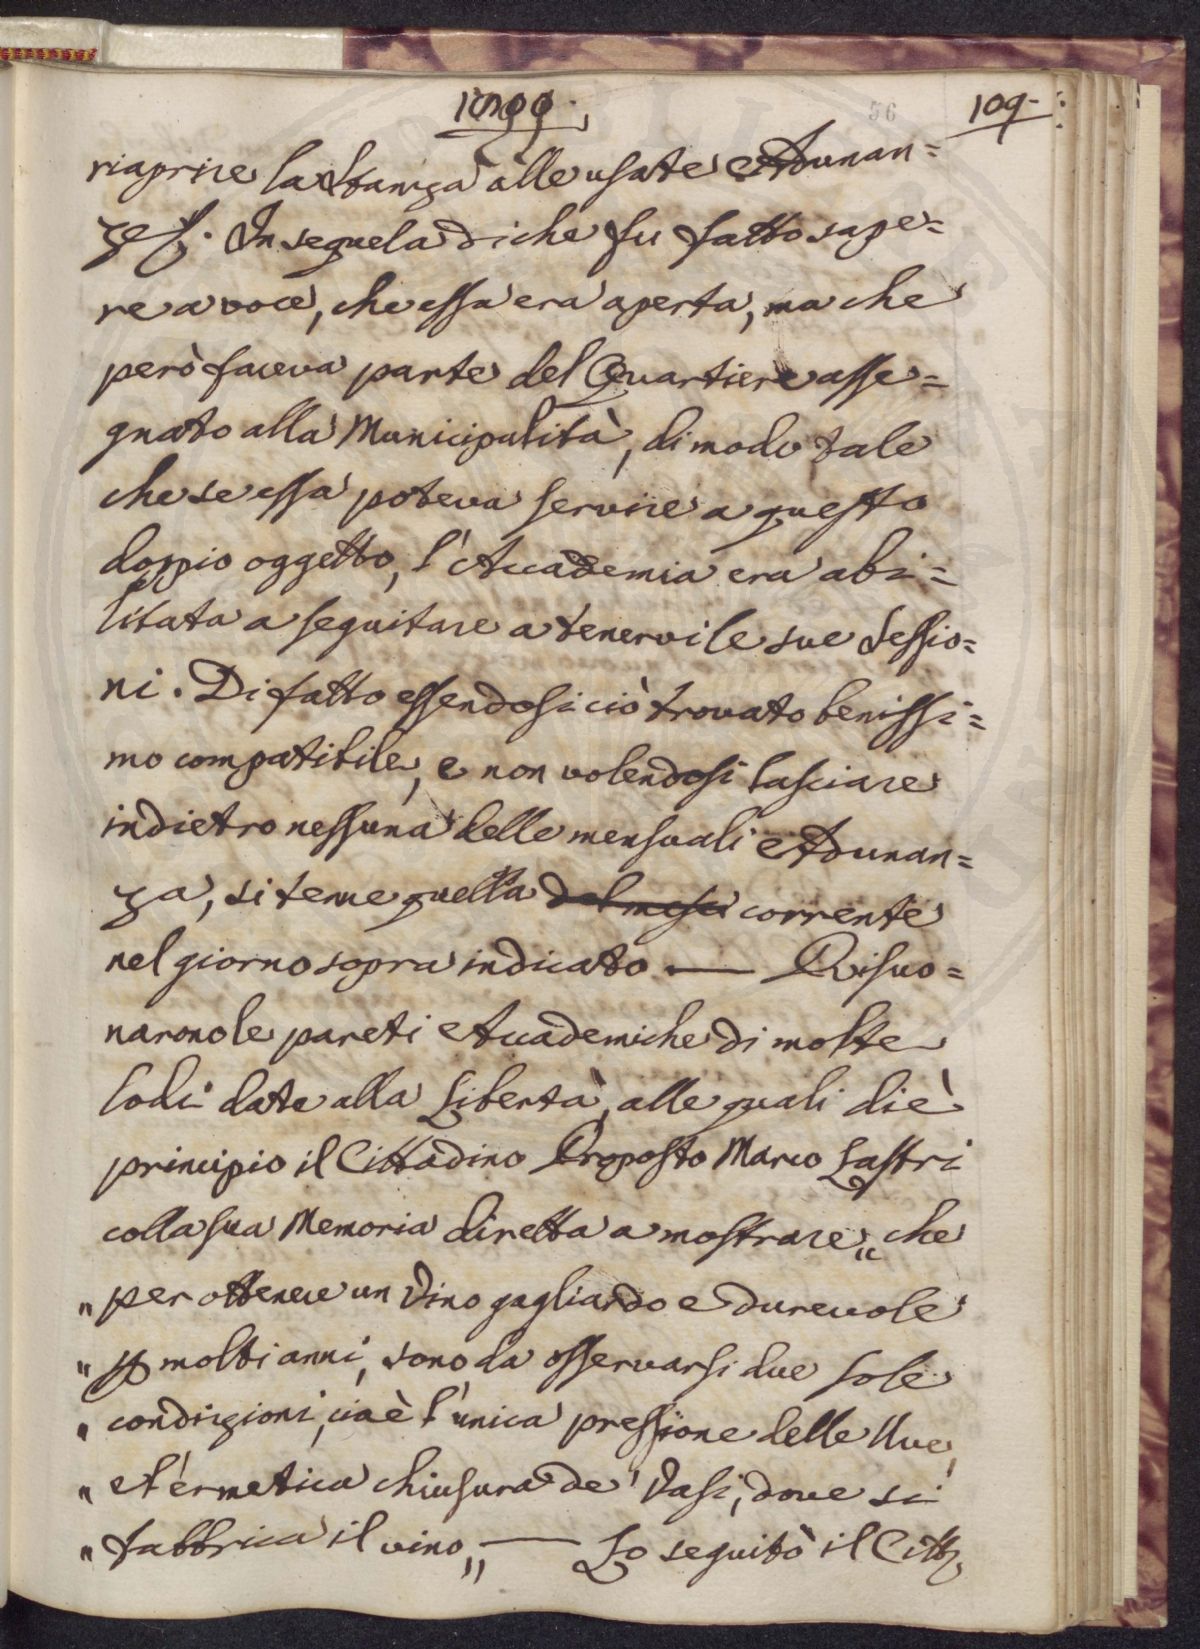 1799. 56 109.
riaprire la Stanza alle usate Adunan=
ze. In seguela di che fu fatto sape=
re a voce, che essa era aperta, ma che
però faceva parte del Quartiere asse=
gnato alla Municipalità, di modo tale
che se essa poteva servire a questo
doppio oggetto, l'Accademia era abi=
litata a seguitare a tenervi le sue Sessio=
ni. Di fatto essendosi ciò trovato benissi=
mo compatibile, e non volendosi lasciare
indietro nessuna delle mensuali Adunan=
za, si tenne quella del mese corrente
nel giorno sopra indicato — Risuo=
narono le pareti Accademiche di molte
lodi date alla Libertà, alle quali diè
principio il Cittadino Proposto Marco Lastri
colla sua Memoria diretta a mostrare „ che
„ per ottenere un Vino gagliardo e durevole
„ p molti anni, sono da osservarsi due sole
„ condizioni, cioè l'unica pressione delle Uve,
„ e l'ermetica chiusura de' Vasi, dove si
„ fabbrica il vino „ — Lo seguitò il Citt.